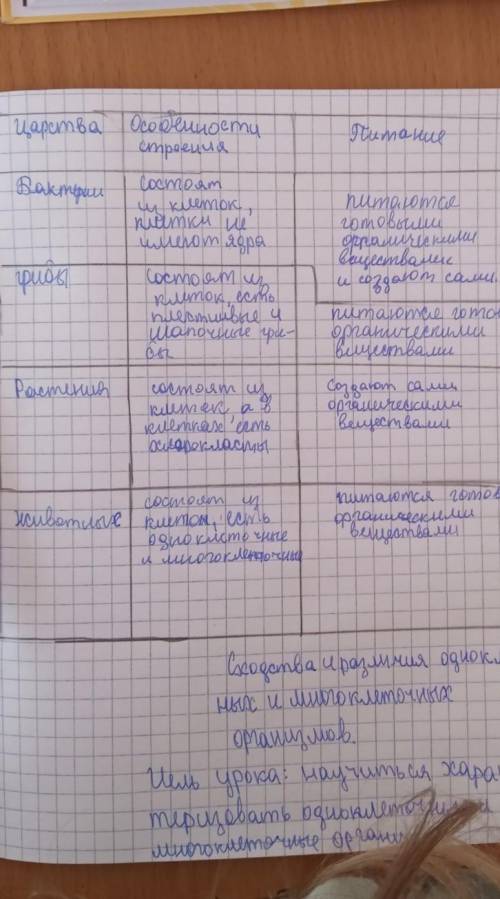 Царства Особенности строения Питание
Бактерии
состоят
из клеток,
клетки не
имеют ядра
питаются
готовыми
органическими
веществами
и создают сами.
грибы
состоят из
клеток, есть
шапочные гри-
бы
питаются готов
органическими
веществами
Растения
состоят из
клеток, а в
клетках есть
хлоропласты
создают сами
органическими
веществами
животные
состоят из
клеток, есть
одноклеточные
и многоклеточные
питаются готов
органическими
веществами
Сходства и различия однокл
ных и многоклеточных
организмов.
Цель урока: научиться хара
теризовать одноклеточн
многоклеточные органи